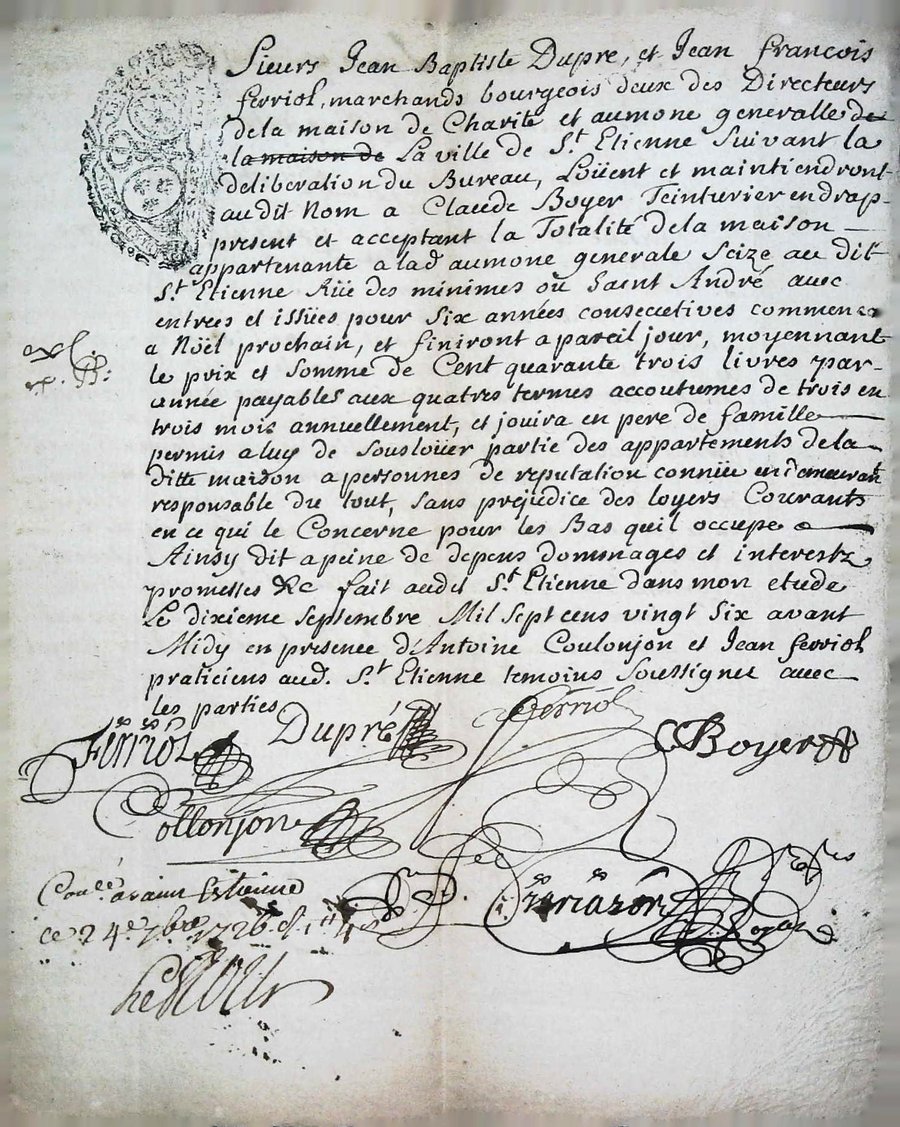 Sieurs Jean Baptiste Dupré, et Jean françois
ferriol, marchands bourgeois deux des Directeurs
dela maison de Charité et aumone generalle de
la maison de La ville de St. Etienne Suivant la
deliberation du Bureau, Loüent et maintiendront
audit Nom a Claude Boyer Teinturier en drap
present et acceptant la Totalité dela maison
appartenante a lad aumone generale Scize au dit
St. Etienne Rüe des minimes ou Saint André avec
entrées et issües pour Six années consecutives commença
a Nöel prochain, et finiront a pareil jour, moyennant
le prix et Somme de Cent quarante trois livres par
année payables aux quatres termes accoutumes de trois en
trois mois annuellement, et jouira en pere de famille
permis a luy de Souslouer partie des appartements dela
ditte maison a personnes de reputation connüe en demeurant
responsable du tout, Sans préjudice des loyers Courants
en ce qui le Concerne pour les Bas quil occupe
Ainsy dit a peine de depens dommages et interestz
promesses &c fait audit St. Etienne dans mon etude
Le dixieme Septembre Mil Sept cens vingt Six avant
Midy en presence d'Antoine Coulonjon et Jean ferriol
praticiens aud. St. Etienne temoins Soussignes avec
les parties
Ferriol Dupré Ferriol CBoyer
Collonjon
a Saint Estienne
ce 24e 7bre 1726